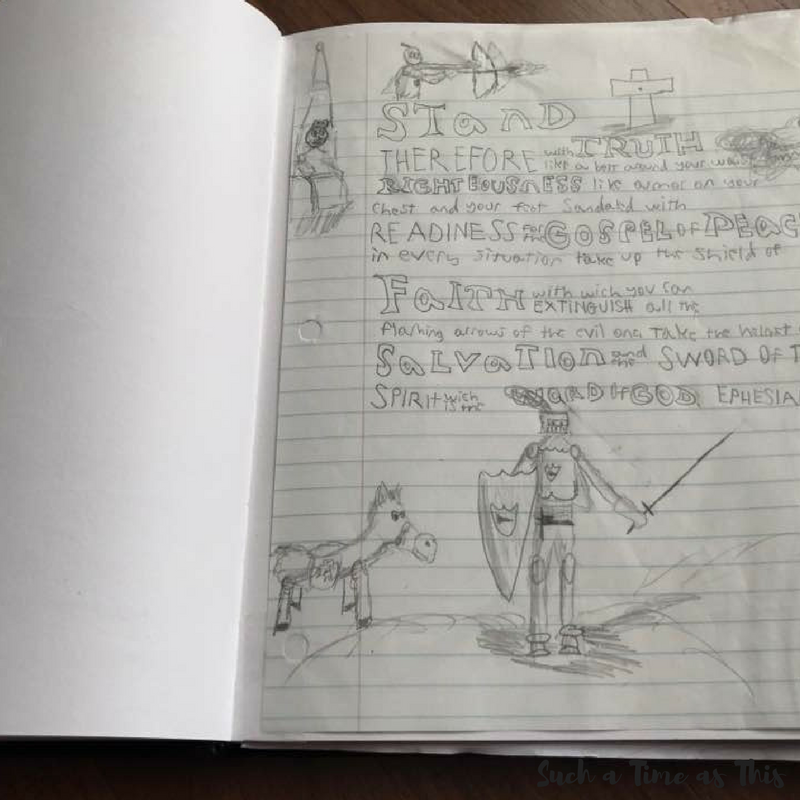 STanD
THEREFORE with TRUTH
like a belt around your
RIGHTEOUSNESS like armor on your
Chest and your feet Sandald with
READINESS GOSPEL OF PEAC
in every situation take up the shield of
FaITH with wich you can
EXTINGUISH all the
flashing arrows of the evil one. Take the
SaLVaTIon and the SWORD OF T
SPIRIT wich is the WORD of GOD. EPHESIA
Such a Time as This